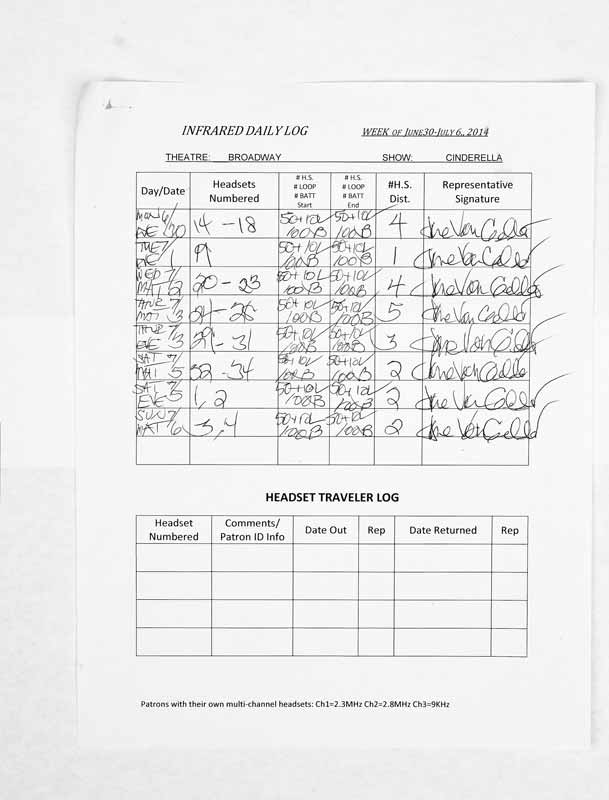 INFRARED DAILY LOG WEEK OF JUNE30-JULY 6, 2014
THEATRE: BROADWAY SHOW: CINDERELLA
Day/Date Headsets Numbered # H.S. # LOOP # BATT Start # H.S. # LOOP # BATT End #H.S. Dist. Representative Signature
MON 6/30 EVE 14 - 18 50+10L 100B 50+10L 100B 4
TUE 7/1 EVE 19 50+10L 100B 50+10L 100B 1
WED 7/2 MAT 20 - 23 50+10L 100B 50+10L 100B 4
7/3 24 - 28 50+10L 100B 50+10L 100B 5
7/3 EVE 29 - 31 50+10L 100B 50+10L 100B 3
SAT 7/5 MAT 32 - 34 50+10L 100B 50+10L 100B 2
SAT 7/5 EVE 1, 2 50+10L 100B 50+10L 100B 2
SUN 7/6 MAT 3, 4 50+10L 100B 50+10L 100B 2
HEADSET TRAVELER LOG
Headset Numbered Comments/ Patron ID Info Date Out Rep Date Returned Rep
Patrons with their own multi-channel headsets: Ch1=2.3MHz Ch2=2.8MHz Ch3=9KHz